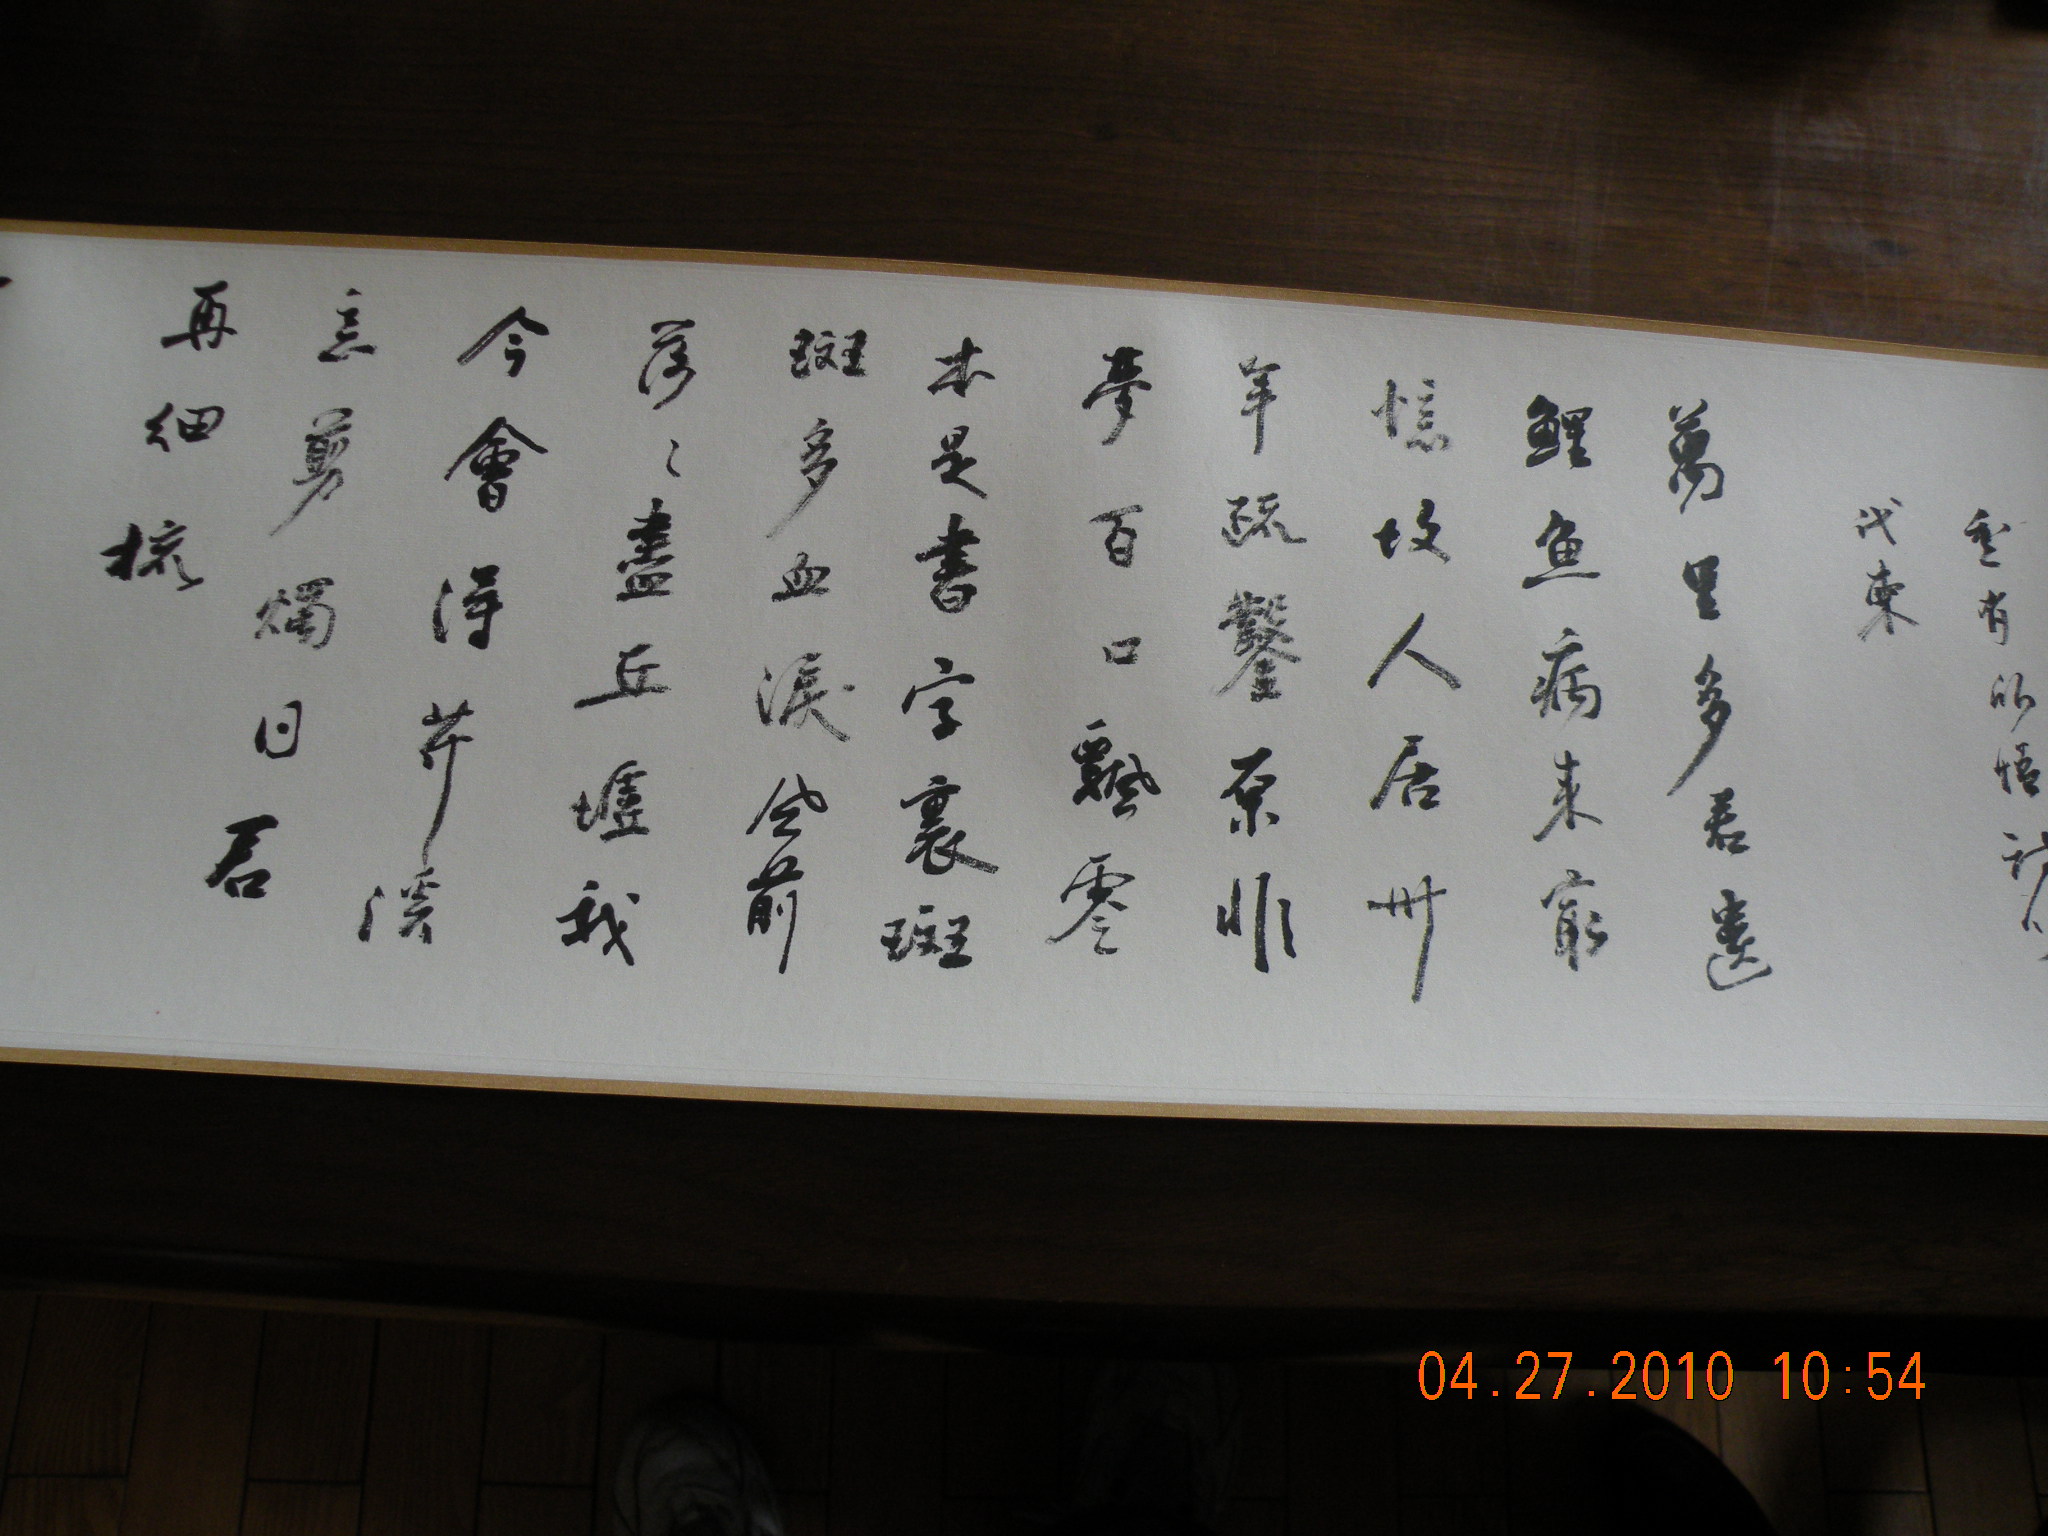 重有所悟
代柬
萬里多君遺
鯉魚病來窮
憶故人居卅
年疏鑿原非
夢百口飄零
本是書字裏斑
斑多血淚風前
落〻盡丘墟我
今會得芹溪
意剪燭日君
再細梳
04.27.2010 10:54